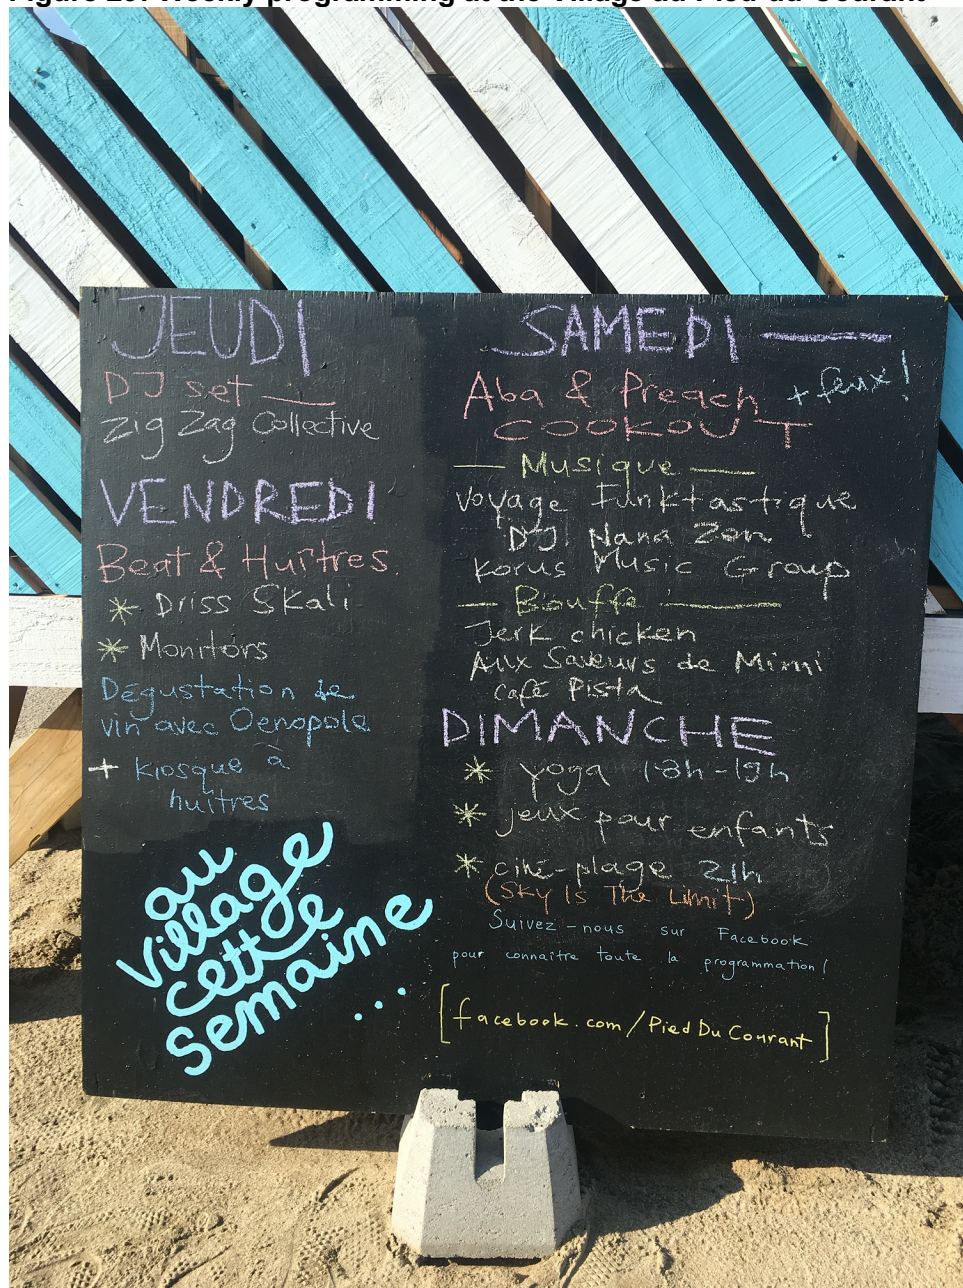 JEUDI
DJ set
Zig Zag Collective
VENDREDI
Beat & Huîtres
* Driss Skali
* Monitors
Dégustation de
vin avec Oenopole
+ kiosque à
huîtres
au
village
cette
semaine
...
SAMEDI
Aba & Preach + feux!
COOKOUT
— Musique —
Voyage Funktastique
DJ Nana Zen
Korus Music Group
— Bouffe —
Jerk chicken
Aux Saveurs de Mimi
café Pista
DIMANCHE
* yoga 18h-19h
* jeux pour enfants
* ciné-plage 21h
(Sky Is The Limit)
Suivez-nous sur Facebook
pour connaître toute la programmation!
[facebook.com/PiedDuCourant]